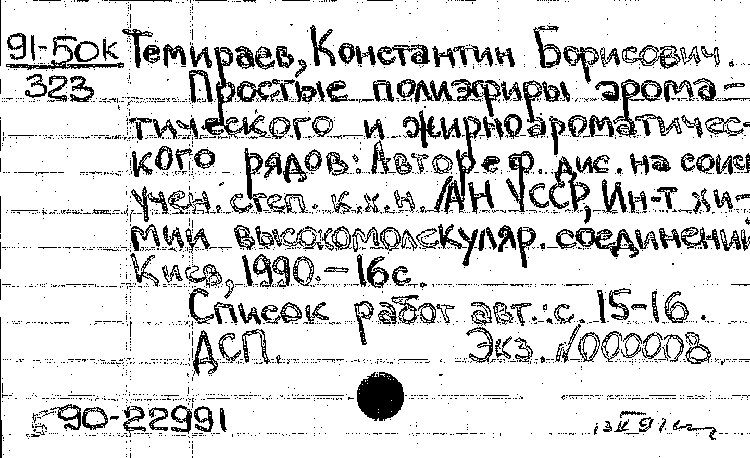 91-50к Темираев, Константин Борисович.
323 Простые полиэфиры арома-
тического и жирноароматичес-
кого рядов: Автореф. дис. на соиск
учен. степ. к.х.н. /АН УССР, Ин-т хи-
мии высокомолекуляр. соединений
Киев, 1990. — 16 с.
Список работ авт.: с. 15-16.
ДСП. Экз. N000008.
90-22991